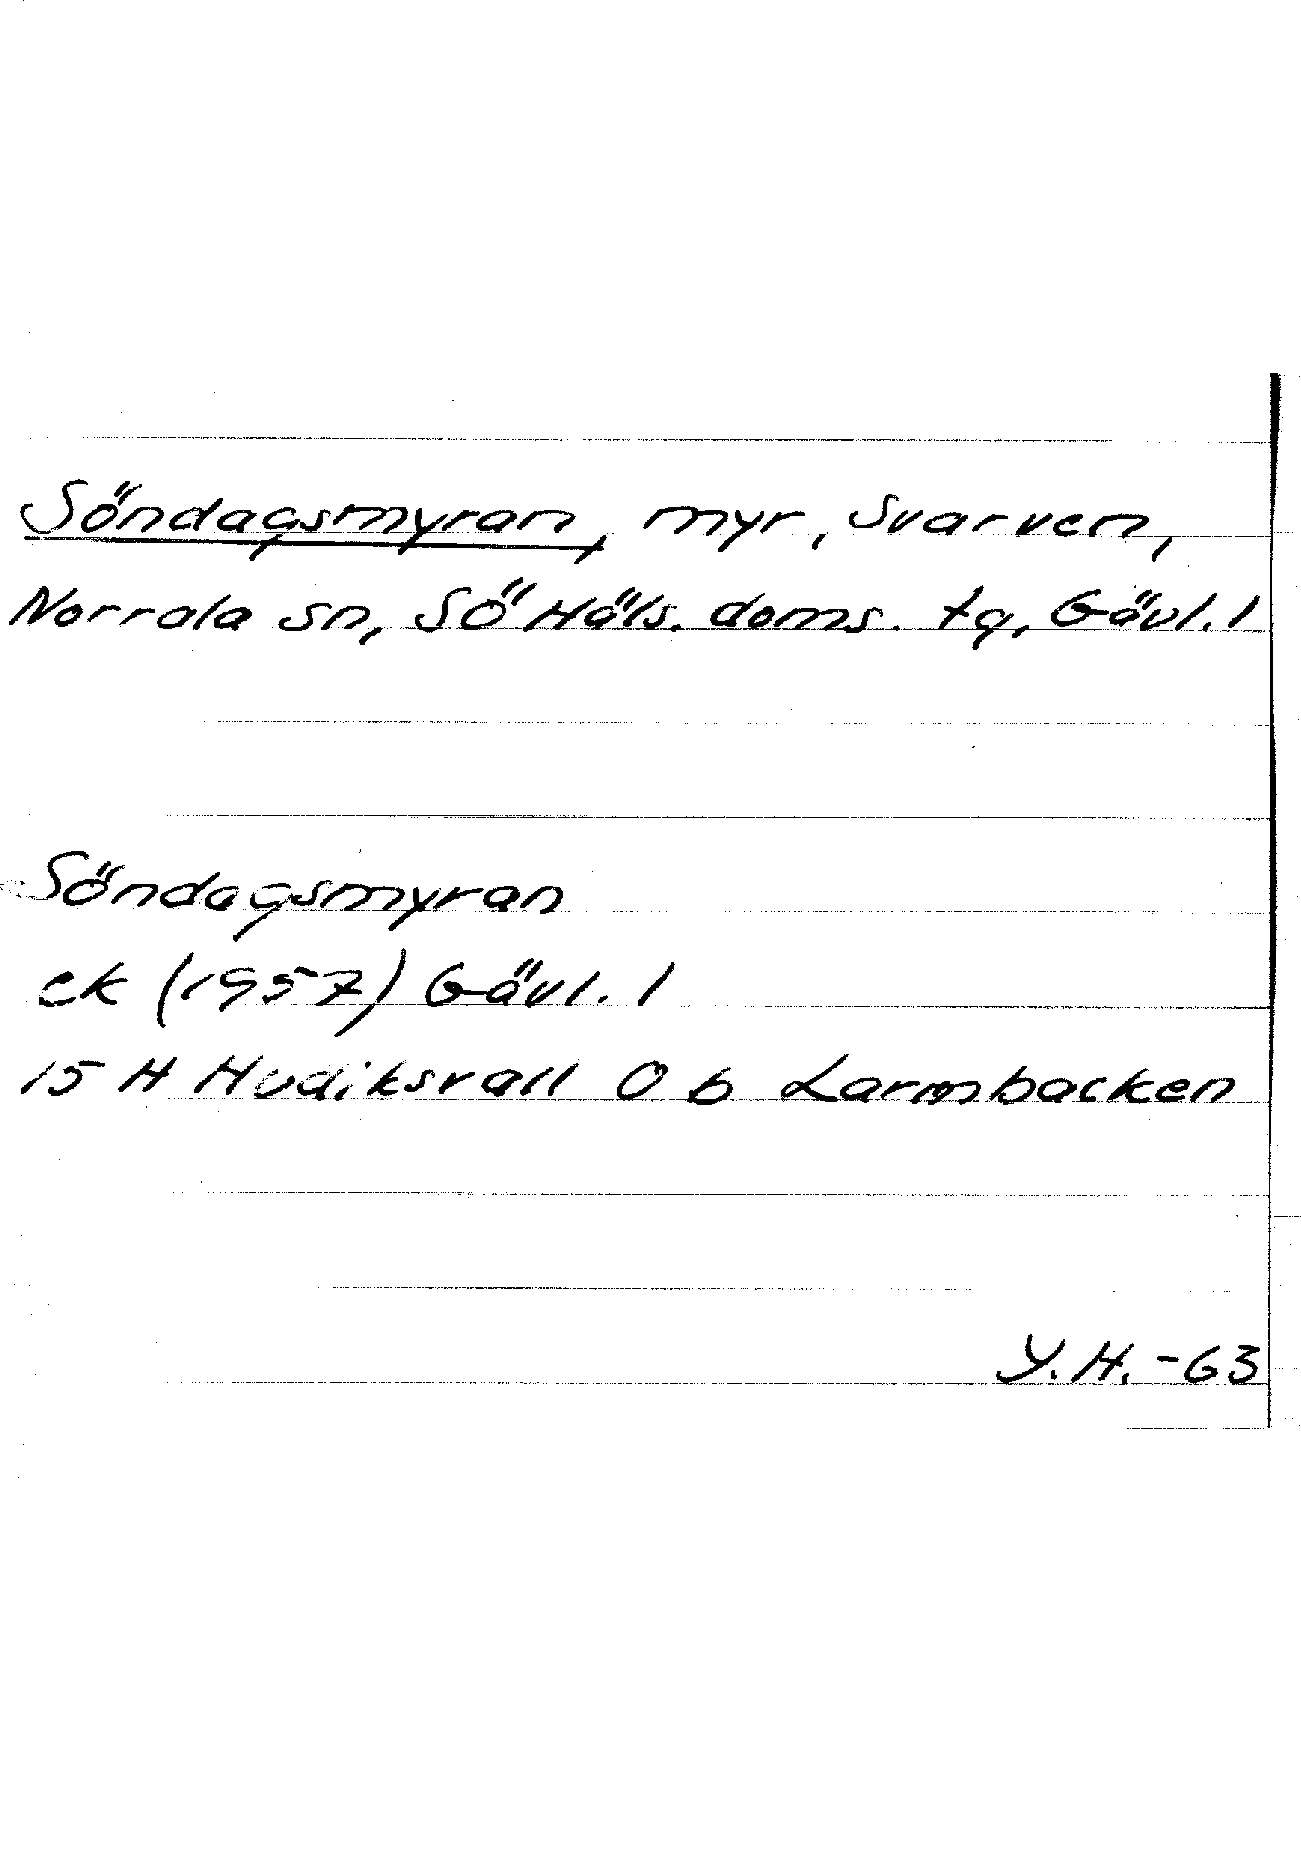 Söndagsmyran, myr, Svarven,
Norrala sn, SÖ Häls. doms. tg, Gävl. l
Söndagsmyran
ek (1957) Gävl. l
15 H Hudiksvall 0 b Larmbacken
Y.H. -63